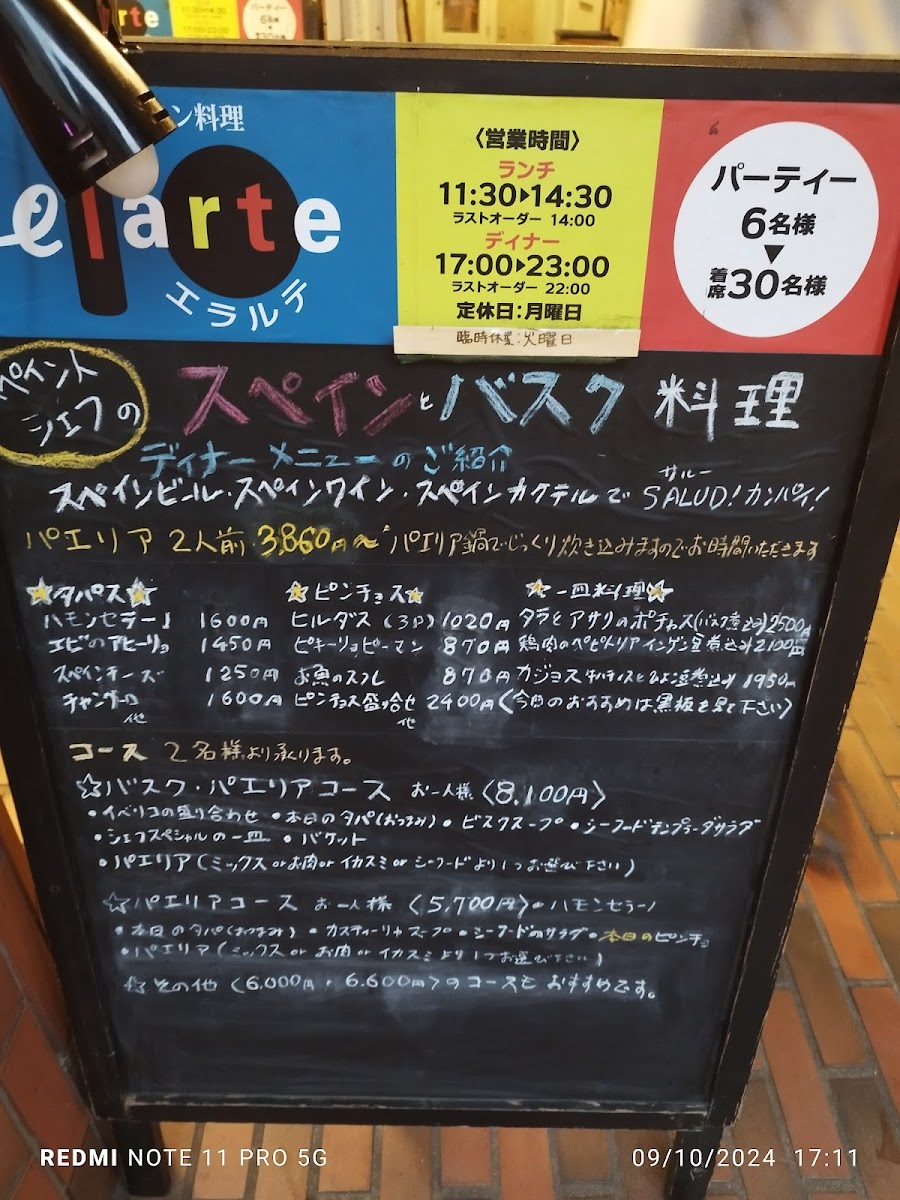 ン料理
elarte
エラルテ
〈営業時間〉
ランチ
11:30▶14:30
ラストオーダー 14:00
ディナー
17:00▶23:00
ラストオーダー 22:00
定休日:月曜日
臨時休業:火曜日
パーティー
6名様
▼
着席30名様
ペイント
シェフの
スペインとバスク 料理
ディナーメニューのご紹介
サルー
スペインビール・スペインワイン・スペインカクテルで SALUD!カンパイ!
パエリア 2人前 3,860円〜 パエリア鍋でじっくり炊き込みますのでお時間いただきます
☆タパス☆
ハモンセラーノ 1600円
エビのアヒージョ 1450円
スペインチーズ 1250円
チャングロ 1600円
他
☆ピンチョス☆
ヒルダス (3P) 1020円
ピキージョピーマン 870円
お魚のスフレ 870円
ピンチョス盛り合せ 2400円
他
☆一皿料理☆
タラとアサリのポチャス(バスク煮込み)2500円
鶏肉のペピトリア インゲン豆煮込み 2100円
カジョス 煮込み 1950円
〈今日のおすすめは黒板を見て下さい〉
コース 2名様より承ります。
☆バスク・パエリアコース お一人様〈8,100円〉
•イベリコの盛り合わせ •本日のタパ(おつまみ) •ビスクスープ •シーフードテンプラーダサラダ
•シェフスペシャルの一皿 •バケット
•パエリア(ミックス or お肉 or イカスミ or シーフードより1つお選び下さい)
☆パエリアコース お一人様〈5,700円〉•ハモンセラーノ
•本日のタパ(おつまみ) •カスティーリャスープ •シーフードのサラダ •本日のピンチョ
•パエリア(ミックス or お肉 or イカスミより1つお選び下さい)
☆その他〈6,000円・6,600円〉のコースもおすすめです。
REDMI NOTE 11 PRO 5G
09/10/2024 17:11